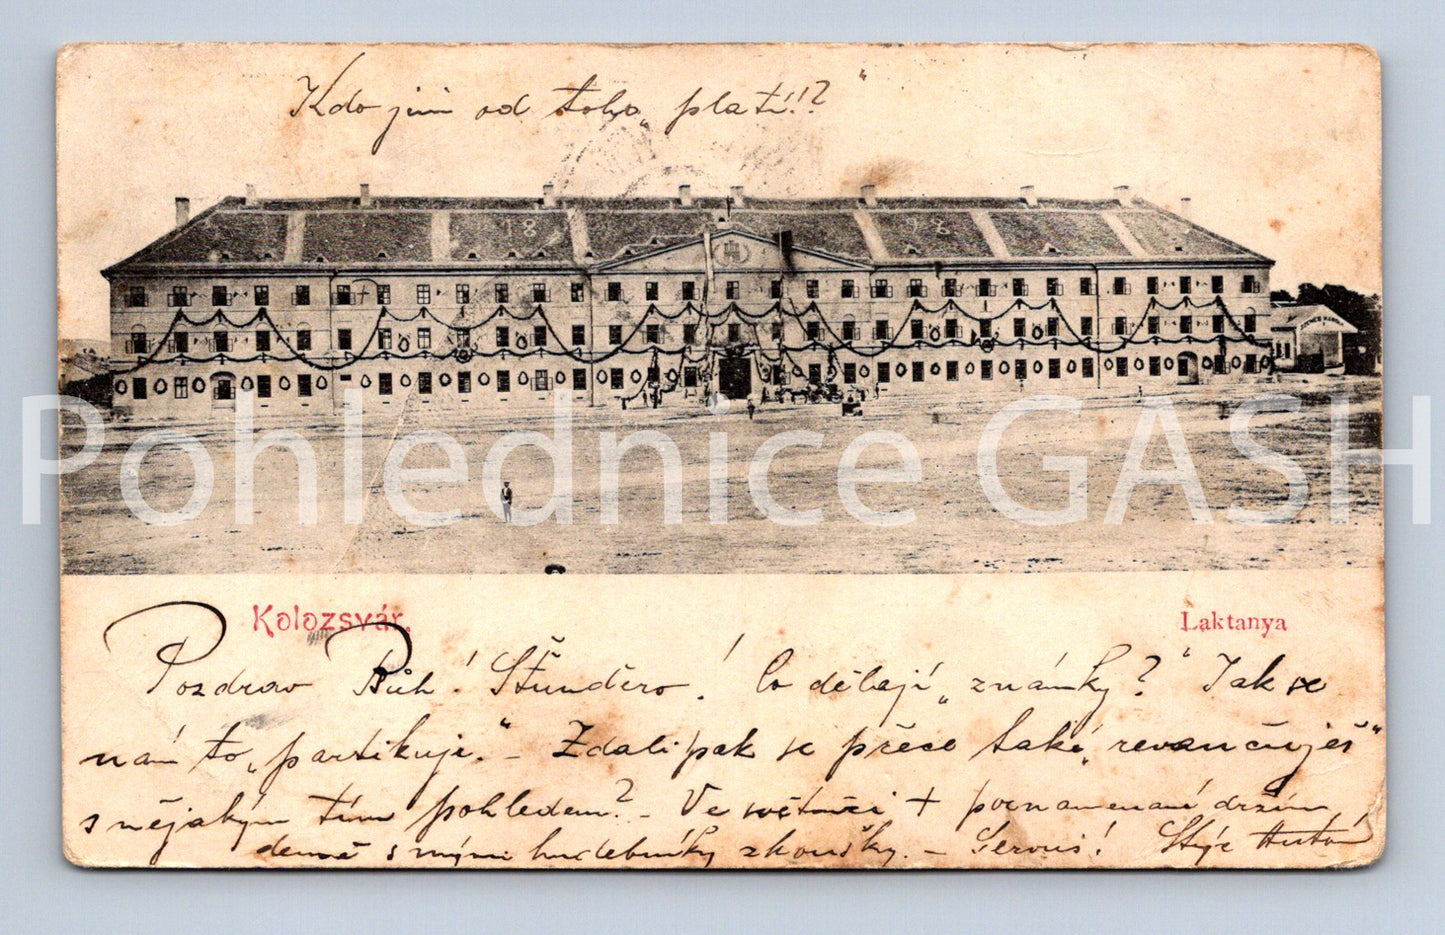 Kdo jim od toho „platí!!?"
18 78
Pohlednice GASH
Kolozsvár.
Laktanya
Pozdrav Bůh! Štundéro! Co dělají „známky?" Jak se
nám to „partikuje." – Zdali pak se přece také „revančuješ"
s nějakým tím pohledem? – Ve + poznamenané držím
denně s mými hudebníky zkoušky. – Servus! Strýc Antón